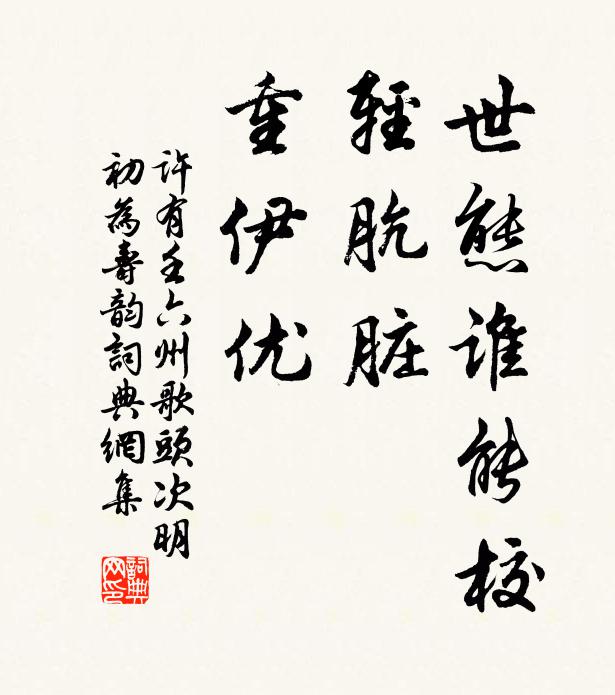 世態誰能校
輕肮脏
重伊优
許有壬六州歌頭次明
初為壽韵詞典網集
詞典
网印